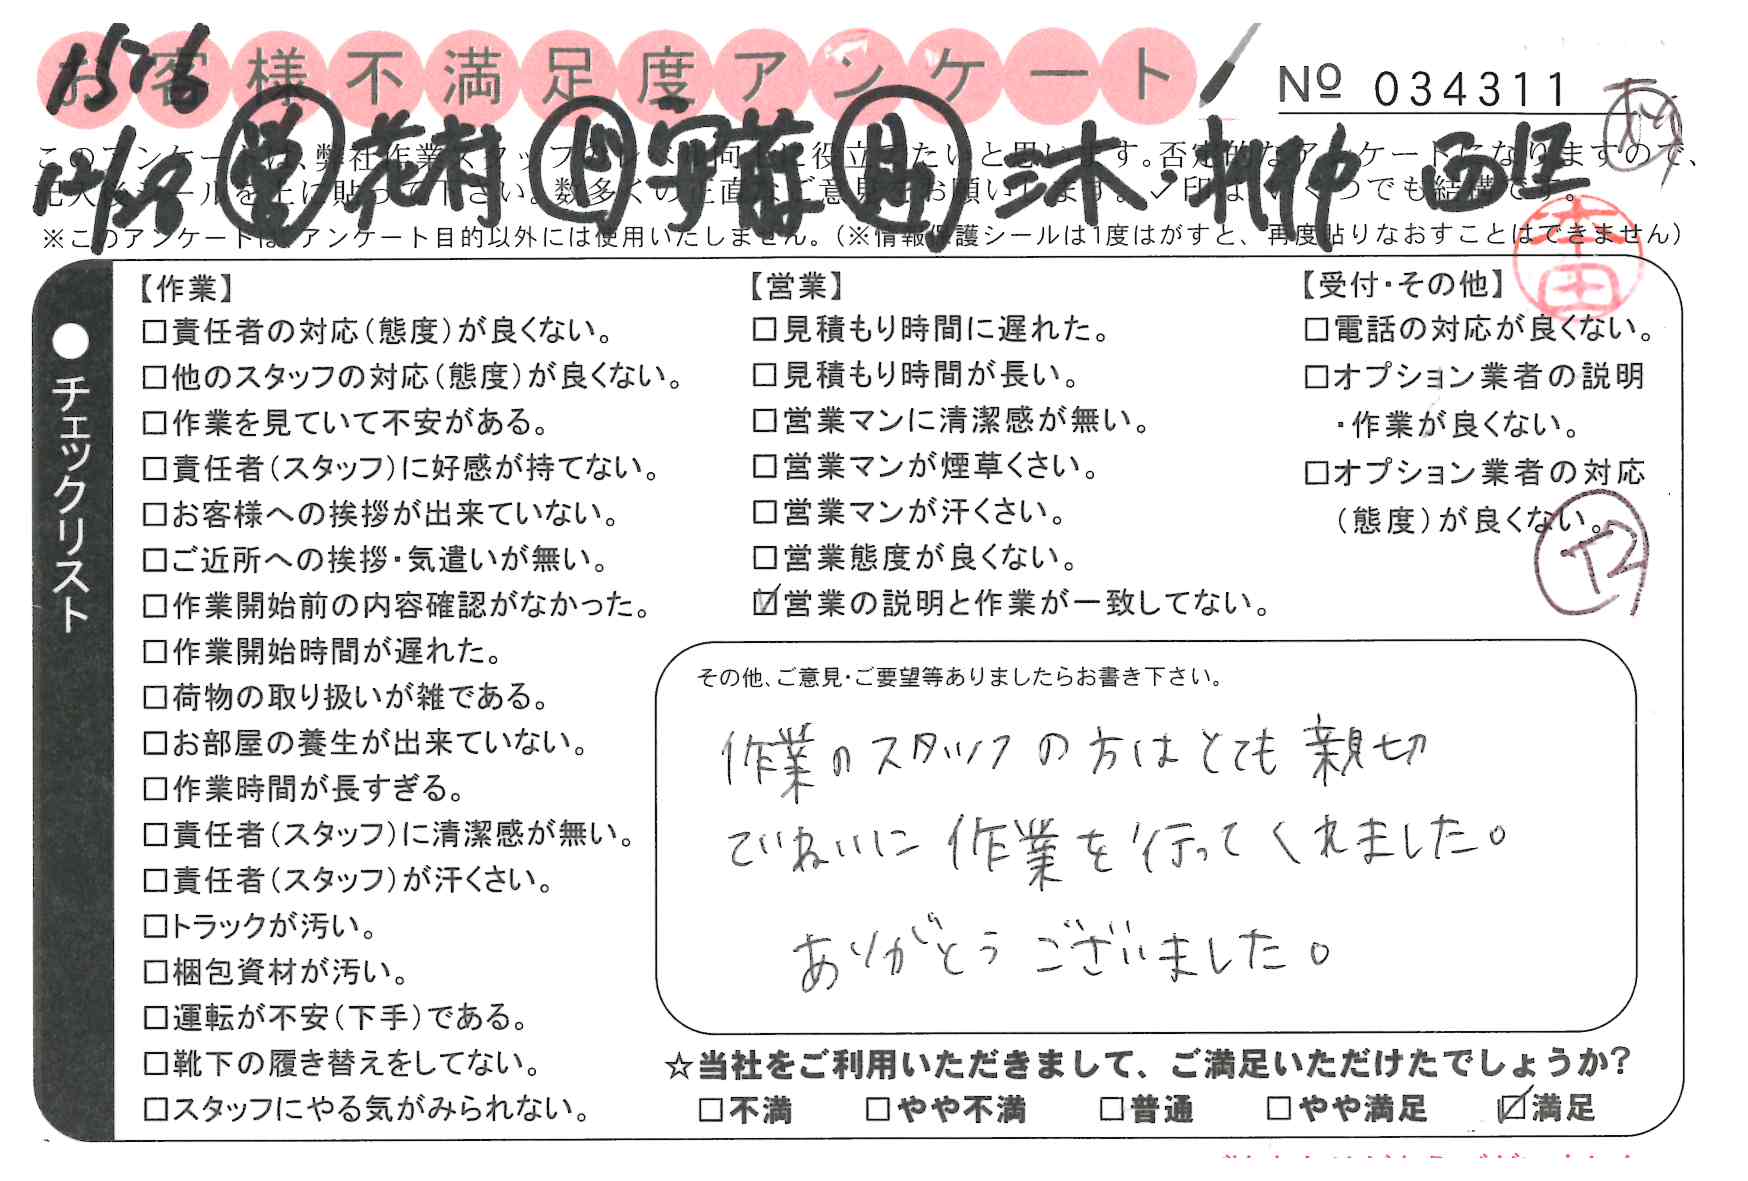 お客様不満足度アンケート
1576
№ 034311
12/28 営 花村 ド 守藤 助 三木・北仲 西垣
このアンケートは、弊社作業スタッフのレベル向上に役立てたいと思います。否定的なアンケートになりますので、
記入後シールを上に貼って下さい。数多くの正直なご意見をお願いします。✓印はいくつでも結構です。
※このアンケートは、アンケート目的以外には使用いたしません。(※情報保護シールは1度はがすと、再度貼りなおすことはできません)
本田
●チェックリスト
【作業】
□責任者の対応(態度)が良くない。
□他のスタッフの対応(態度)が良くない。
□作業を見ていて不安がある。
□責任者(スタッフ)に好感が持てない。
□お客様への挨拶が出来ていない。
□ご近所への挨拶・気遣いが無い。
□作業開始前の内容確認がなかった。
□作業開始時間が遅れた。
□荷物の取り扱いが雑である。
□お部屋の養生が出来ていない。
□作業時間が長すぎる。
□責任者(スタッフ)に清潔感が無い。
□責任者(スタッフ)が汗くさい。
□トラックが汚い。
□梱包資材が汚い。
□運転が不安(下手)である。
□靴下の履き替えをしてない。
□スタッフにやる気がみられない。
【営業】
□見積もり時間に遅れた。
□見積もり時間が長い。
□営業マンに清潔感が無い。
□営業マンが煙草くさい。
□営業マンが汗くさい。
□営業態度が良くない。
☑営業の説明と作業が一致してない。
【受付・その他】
□電話の対応が良くない。
□オプション業者の説明
・作業が良くない。
□オプション業者の対応
(態度)が良くない。
その他、ご意見・ご要望等ありましたらお書き下さい。
作業のスタッフの方はとても親切
でいねいに作業を行ってくれました。
ありがとうございました。
☆当社をご利用いただきまして、ご満足いただけたでしょうか?
□不満 □やや不満 □普通 □やや満足 ☑満足